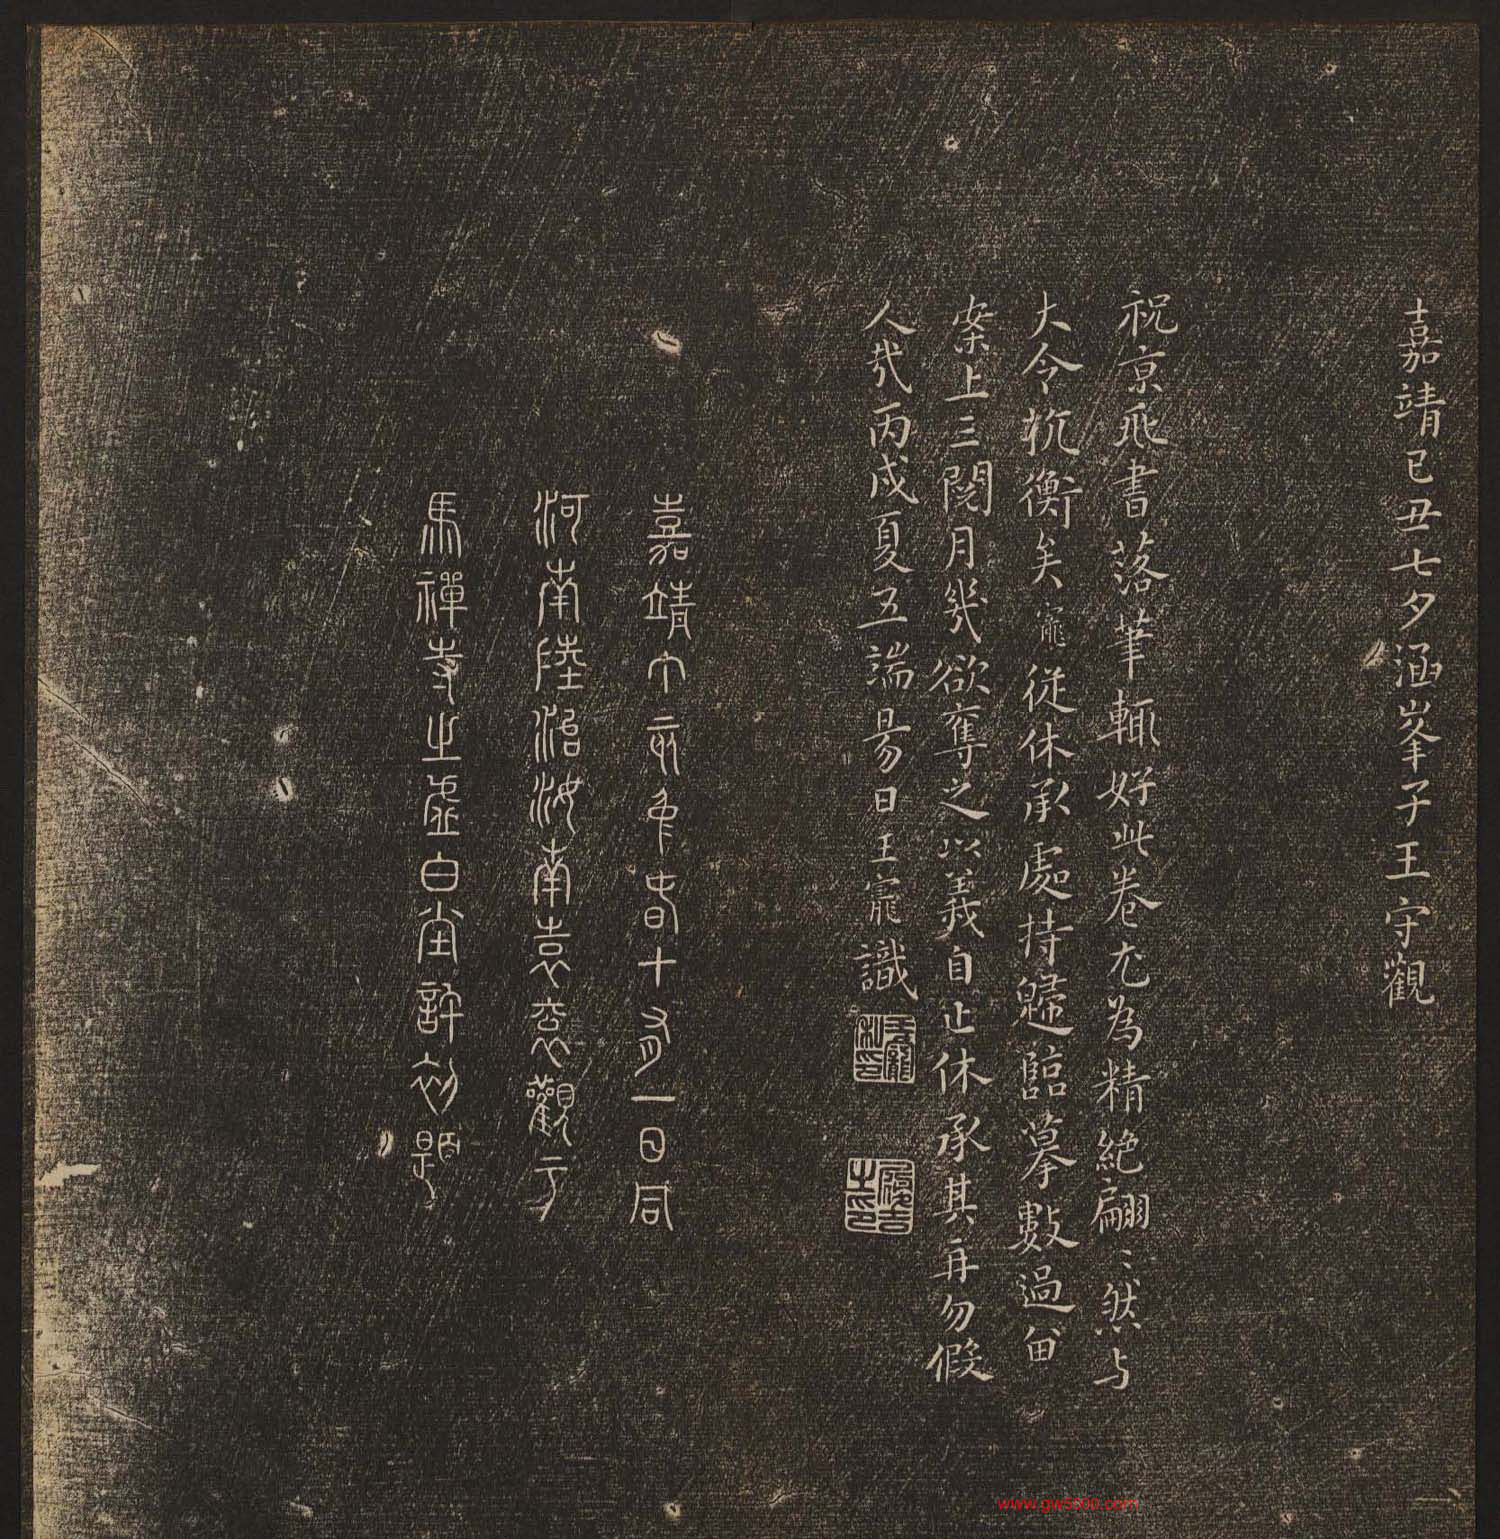 嘉靖己丑七夕涵峯子王守觀
祝京兆書落筆輒好此卷尤為精絕翩〻然与
大令抗衡矣寵從休承處持歸臨摹數過留
案上三閱月幾欲奪之以義自止休承其再勿假
人哉丙戌夏五端昜日王寵識
王履吉印
嘉靖六年春十有一日同
河南陸治汝南袁袠觀于
馬禪寺之虛白堂許初題
www.gw5000.com